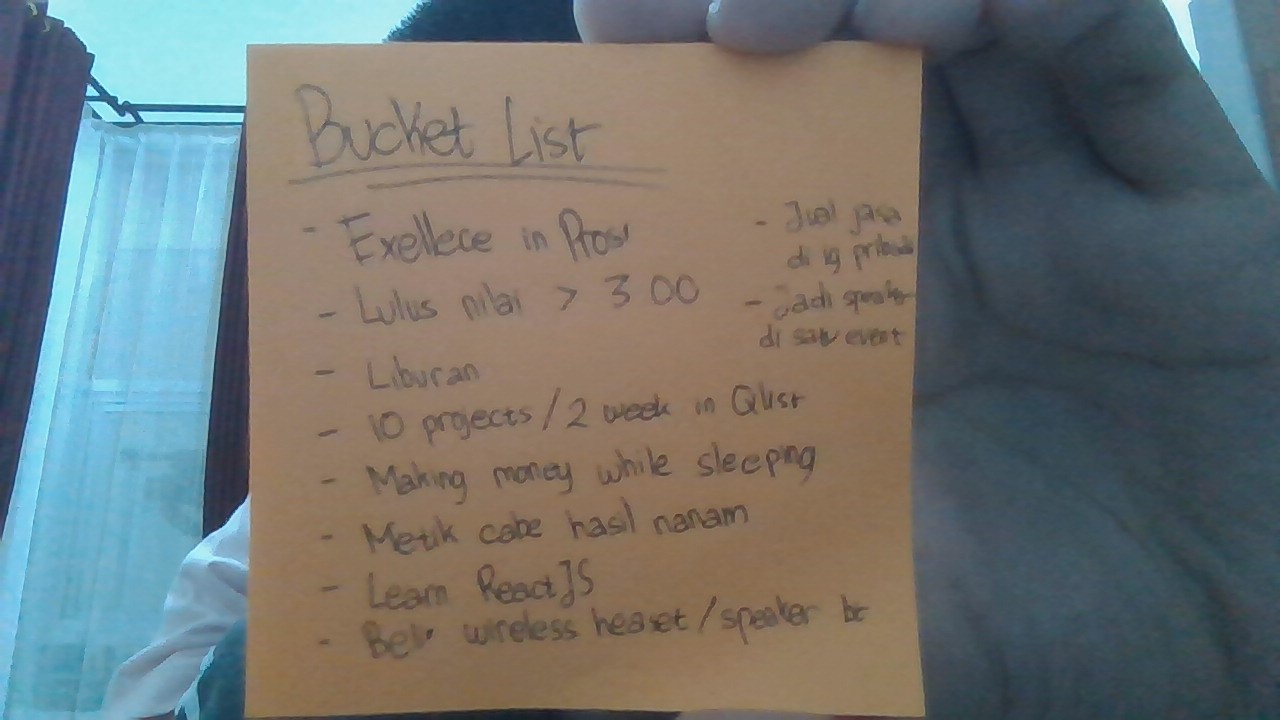 Bucket List
- Exellece in Prosi
- Lulus nilai > 3 00
- Liburan
- 10 projects/2 week in Qlist
- Making money while sleeping
- Metik cabe hasil nanam
- Learn ReactJS
- Beli wireless heaset/speaker bt
- Jual jasa
di ig pribadi
- Jadi speaker
di satu event